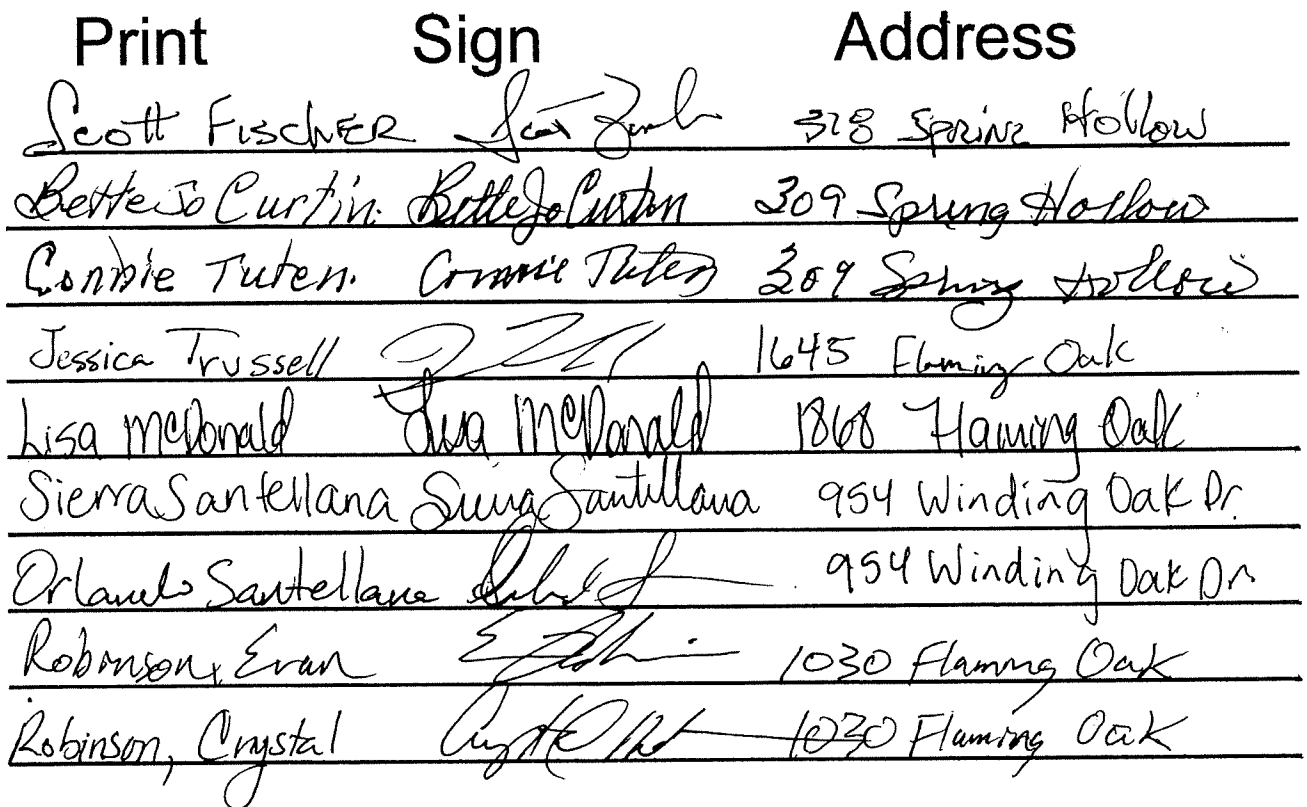 Print Sign Address
Scott Fischer 328 Spring Hollow
Bette Jo Curtin. Bette Jo Curtin 309 Spring Hollow
Connie Tuten. Connie Tuten 309 Spring Hollow
Jessica Trussell 1645 Flaming Oak
Lisa McDonald Lisa McDonald 1868 Flaming Oak
Sierra Santellana Sierra Santellana 954 Winding Oak Dr.
Orlando Santellana 954 Winding Oak Dr
Robinson, Evan 1030 Flaming Oak
Robinson, Crystal 1030 Flaming Oak